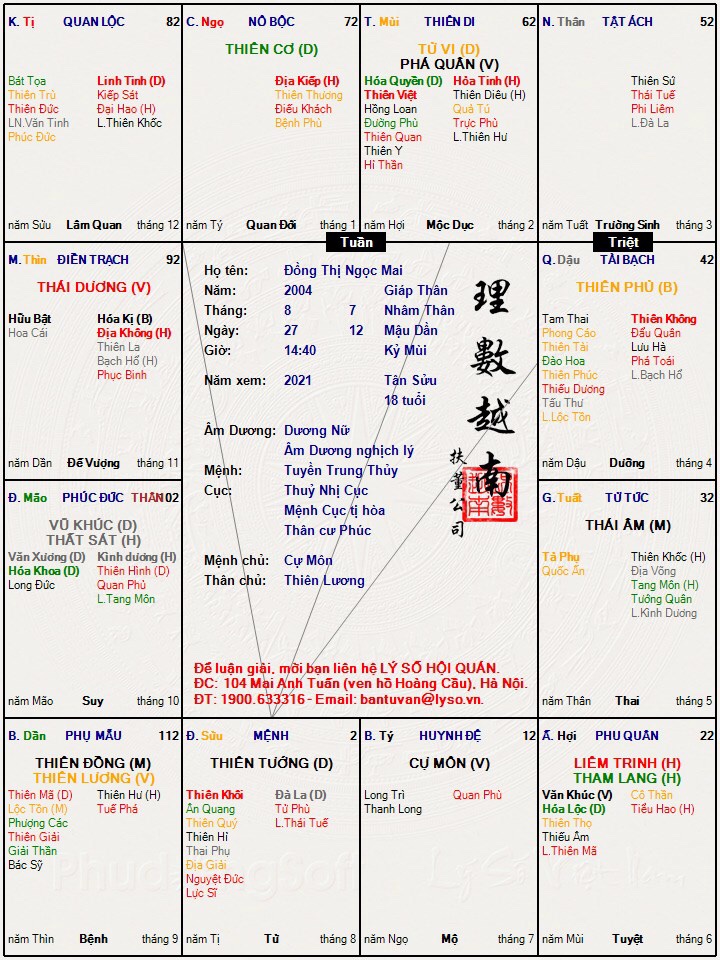 K. Tị QUAN LỘC 82
Bát Tọa Linh Tinh (D)
Thiên Trù Kiếp Sát
Thiên Đức Đại Hao (H)
LN.Văn Tinh L.Thiên Khốc
Phúc Đức
năm Sửu Lâm Quan tháng 12
C. Ngọ NÔ BỘC 72
THIÊN CƠ (D)
Địa Kiếp (H)
Thiên Thương
Điếu Khách
Bệnh Phù
năm Tý Quan Đới tháng 1
T. Mùi THIÊN DI 62
TỬ VI (D)
PHÁ QUÂN (V)
Hóa Quyền (D) Hỏa Tinh (H)
Thiên Việt Thiên Diêu (H)
Hồng Loan Quả Tú
Đường Phù Trực Phù
Thiên Quan L.Thiên Hư
Thiên Y
Hỉ Thần
năm Hợi Mộc Dục tháng 2
N. Thân TẬT ÁCH 52
Thiên Sứ
Thái Tuế
Phi Liêm
L.Đà La
năm Tuất Trường Sinh tháng 3
Tuần
Triệt
M. Thìn ĐIỀN TRẠCH 92
THÁI DƯƠNG (V)
Hữu Bật Hóa Kị (B)
Hoa Cái Địa Không (H)
Thiên La
Bạch Hổ (H)
Phục Binh
năm Dần Đế Vượng tháng 11
Họ tên: Đồng Thị Ngọc Mai
Năm: 2004 Giáp Thân
Tháng: 8 7 Nhâm Thân
Ngày: 27 12 Mậu Dần
Giờ: 14:40 Kỷ Mùi
Năm xem: 2021 Tân Sửu
18 tuổi
Âm Dương: Dương Nữ
Âm Dương nghịch lý
Mệnh: Tuyền Trung Thủy
Cục: Thuỷ Nhị Cục
Mệnh Cục tị hòa
Thân cư Phúc
Mệnh chủ: Cự Môn
Thân chủ: Thiên Lương
理數越南
扶董公司
Để luận giải, mời bạn liên hệ LÝ SỐ HỘI QUÁN.
ĐC: 104 Mai Anh Tuấn (ven hồ Hoàng Cầu), Hà Nội.
ĐT: 1900.633316 - Email: bantuvan@lyso.vn.
Q. Dậu TÀI BẠCH 42
THIÊN PHỦ (B)
Tam Thai Thiên Không
Phong Cáo Đẩu Quân
Thiên Tài Lưu Hà
Đào Hoa Phá Toái
Thiên Phúc L.Bạch Hổ
Thiếu Dương
Tấu Thư
L.Lộc Tồn
năm Dậu Dưỡng tháng 4
Đ. Mão PHÚC ĐỨC THÂN 102
VŨ KHÚC (D)
THẤT SÁT (H)
Văn Xương (D) Kình dương (H)
Hóa Khoa (D) Thiên Hình (D)
Long Đức Quan Phủ
L.Tang Môn
năm Mão Suy tháng 10
G. Tuất TỬ TỨC 32
THÁI ÂM (M)
Tả Phụ Thiên Khốc (H)
Quốc Ấn Địa Võng
Tang Môn (H)
Tướng Quân
L.Kình Dương
năm Thân Thai tháng 5
B. Dần PHỤ MẪU 112
THIÊN ĐỒNG (M)
THIÊN LƯƠNG (V)
Thiên Mã (D) Thiên Hư (H)
Lộc Tồn (M) Tuế Phá
Phượng Các
Thiên Giải
Giải Thần
Bác Sỹ
năm Thìn Bệnh tháng 9
Đ. Sửu MỆNH 2
THIÊN TƯỚNG (D)
Thiên Khôi Đà La (D)
Ân Quang Tử Phù
Thiên Quý L.Thái Tuế
Thiên Hỉ
Thai Phụ
Địa Giải
Nguyệt Đức
Lực Sĩ
năm Tị Tử tháng 8
B. Tý HUYNH ĐỆ 12
CỰ MÔN (V)
Long Trì Quan Phù
Thanh Long
năm Ngọ Mộ tháng 7
Ấ. Hợi PHU QUÂN 22
LIÊM TRINH (H)
THAM LANG (H)
Văn Khúc (V) Cô Thần
Hóa Lộc (D) Tiểu Hao (H)
Thiên Thọ
Thiếu Âm
L.Thiên Mã
năm Mùi Tuyệt tháng 6